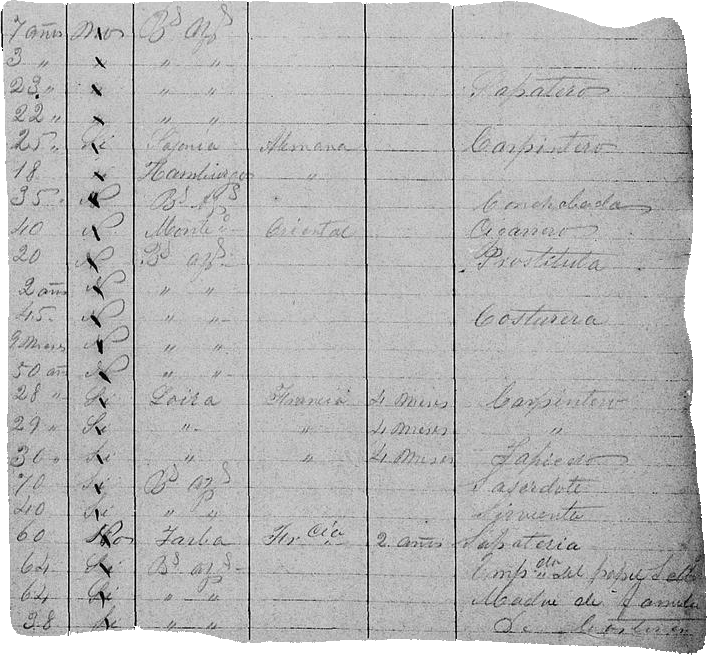 7 años No Bs Ays
3 " " "
23 " " " Zapatero
22 " " "
25 " Si Sajonia Alemana Carpintero
18 Si Hamburgo "
35 N Bs Ays Conchabada
40 N Montevo Oriental Cigarrero
20 N Bs Ays Prostituta
2 años N " "
45 N " " Costurera
9 meses N " "
50 añ N " "
28 " Si Loira Francia 4 meses Carpintero
29 " Si " " 4 meses "
30 " Si " " 4 meses
70 Si Bs Ays Saserdote
40 Si " " Sirvienta
60 No Tarba Francia 2 años Sapateria
64 Si Bs Ays Empda del papel
64 Si " " Madre de familia
38 Si " " De